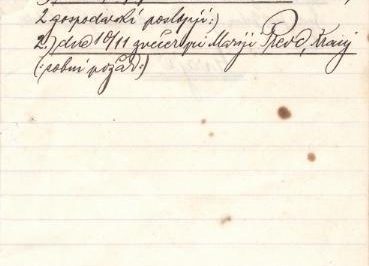 2 gospodarski poslopji:)
2.) dne 10/11 zvečer pri Mariji
(:sobni požar:)